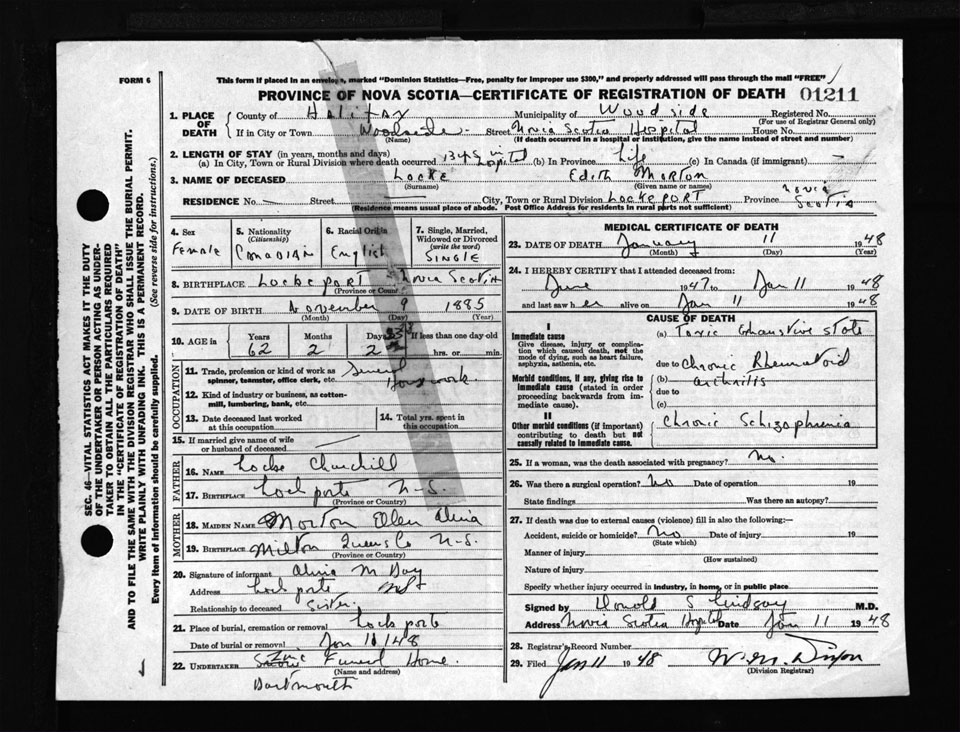 FORM 6
This form if placed in an envelope, marked "Dominion Statistics—Free, penalty for improper use $300," and properly addressed will pass through the mail "FREE"
PROVINCE OF NOVA SCOTIA—CERTIFICATE OF REGISTRATION OF DEATH 01211
1. PLACE OF DEATH { County of Halifax Municipality of Woodside Registered No.
(For use of Registrar General only)
If in City or Town Woodside Street Nova Scotia Hospital House No.
(Name) (If death occurred in a hospital or institution, give the name instead of street and number)
2. LENGTH OF STAY (in years, months and days)
(a) In City, Town or Rural Division where death occurred in hospital (b) In Province Life (c) In Canada (if immigrant) —
3. NAME OF DECEASED Locke Edith Morton
(Surname) (Given name or names)
RESIDENCE No. — Street — City, Town or Rural Division Lockeport Province Nova Scotia
(Residence means usual place of abode. Post Office Address for residents in rural parts not sufficient)
4. Sex Female
5. Nationality (Citizenship) Canadian
6. Racial Origin English
7. Single, Married, Widowed or Divorced (write the word) SINGLE
8. BIRTHPLACE Lockeport Nova Scotia
(Province or Country)
9. DATE OF BIRTH November 9 1885
(Month) (Day) (Year)
10. AGE Years 62 Months 2 Days 2 If less than one day old hrs. or min.
OCCUPATION
11. Trade, profession or kind of work as spinner, teamster, office clerk, etc. General Housework.
12. Kind of industry or business, as cotton-mill, lumbering, bank, etc.
13. Date deceased last worked at this occupation
14. Total yrs. spent in this occupation
15. If married give name of wife or husband of deceased
FATHER
16. NAME Locke Churchill
17. BIRTHPLACE Lockporte N-S.
(Province or Country)
MOTHER
18. MAIDEN NAME Morton Ellen Alvia
19. BIRTHPLACE Milton Queens Co N-S.
(Province or Country)
20. Signature of informant M Day
Address Lockporte NS
Relationship to deceased Sister.
21. Place of burial, cremation or removal Lockporte
Date of burial or removal Jan 11/48
22. UNDERTAKER Funeral Home.
(Name and address)
Dartmouth
MEDICAL CERTIFICATE OF DEATH
23. DATE OF DEATH January 11 1948
(Month) (Day) (Year)
24. I HEREBY CERTIFY that I attended deceased from:
June 1947 to Jan 11 1948
and last saw her alive on Jan 11 1948
CAUSE OF DEATH
I
Immediate cause
Give disease, injury or complication which caused death, not the mode of dying, such as heart failure, asphyxia, asthenia, etc.
(a) Toxic Exhaustive state
due to Chronic Rheumatoid
Morbid conditions, if any, giving rise to immediate cause (stated in order proceeding backwards from immediate cause).
(b) arthritis
due to
(c)
II
Other morbid conditions (if important) contributing to death but not causally related to immediate cause.
Chronic Schizophrenia
25. If a woman, was the death associated with pregnancy? No.
26. Was there a surgical operation? No Date of operation 19
State findings Was there an autopsy?
27. If death was due to external causes (violence) fill in also the following:—
Accident, suicide or homicide? No Date of injury 19
(State which)
Manner of injury
(How sustained)
Nature of injury
Specify whether injury occurred in industry, in home, or in public place
Signed by Donald S Lindsay M.D.
Address Nova Scotia Hospital Date Jan 11 1948
28. Registrar's Record Number
29. Filed Jan 11 1948 Dixon
(Division Registrar)
SEC. 46—VITAL STATISTICS ACT MAKES IT THE DUTY
OF THE UNDERTAKER OR PERSON ACTING AS UNDER-
TAKER TO OBTAIN ALL THE PARTICULARS REQUIRED
IN THE "CERTIFICATE OF REGISTRATION OF DEATH"
AND TO FILE THE SAME WITH THE DIVISION REGISTRAR WHO SHALL ISSUE THE BURIAL PERMIT.
WRITE PLAINLY WITH UNFADING INK. THIS IS A PERMANENT RECORD.
Every item of Information should be carefully supplied. (See reverse side for instructions.)